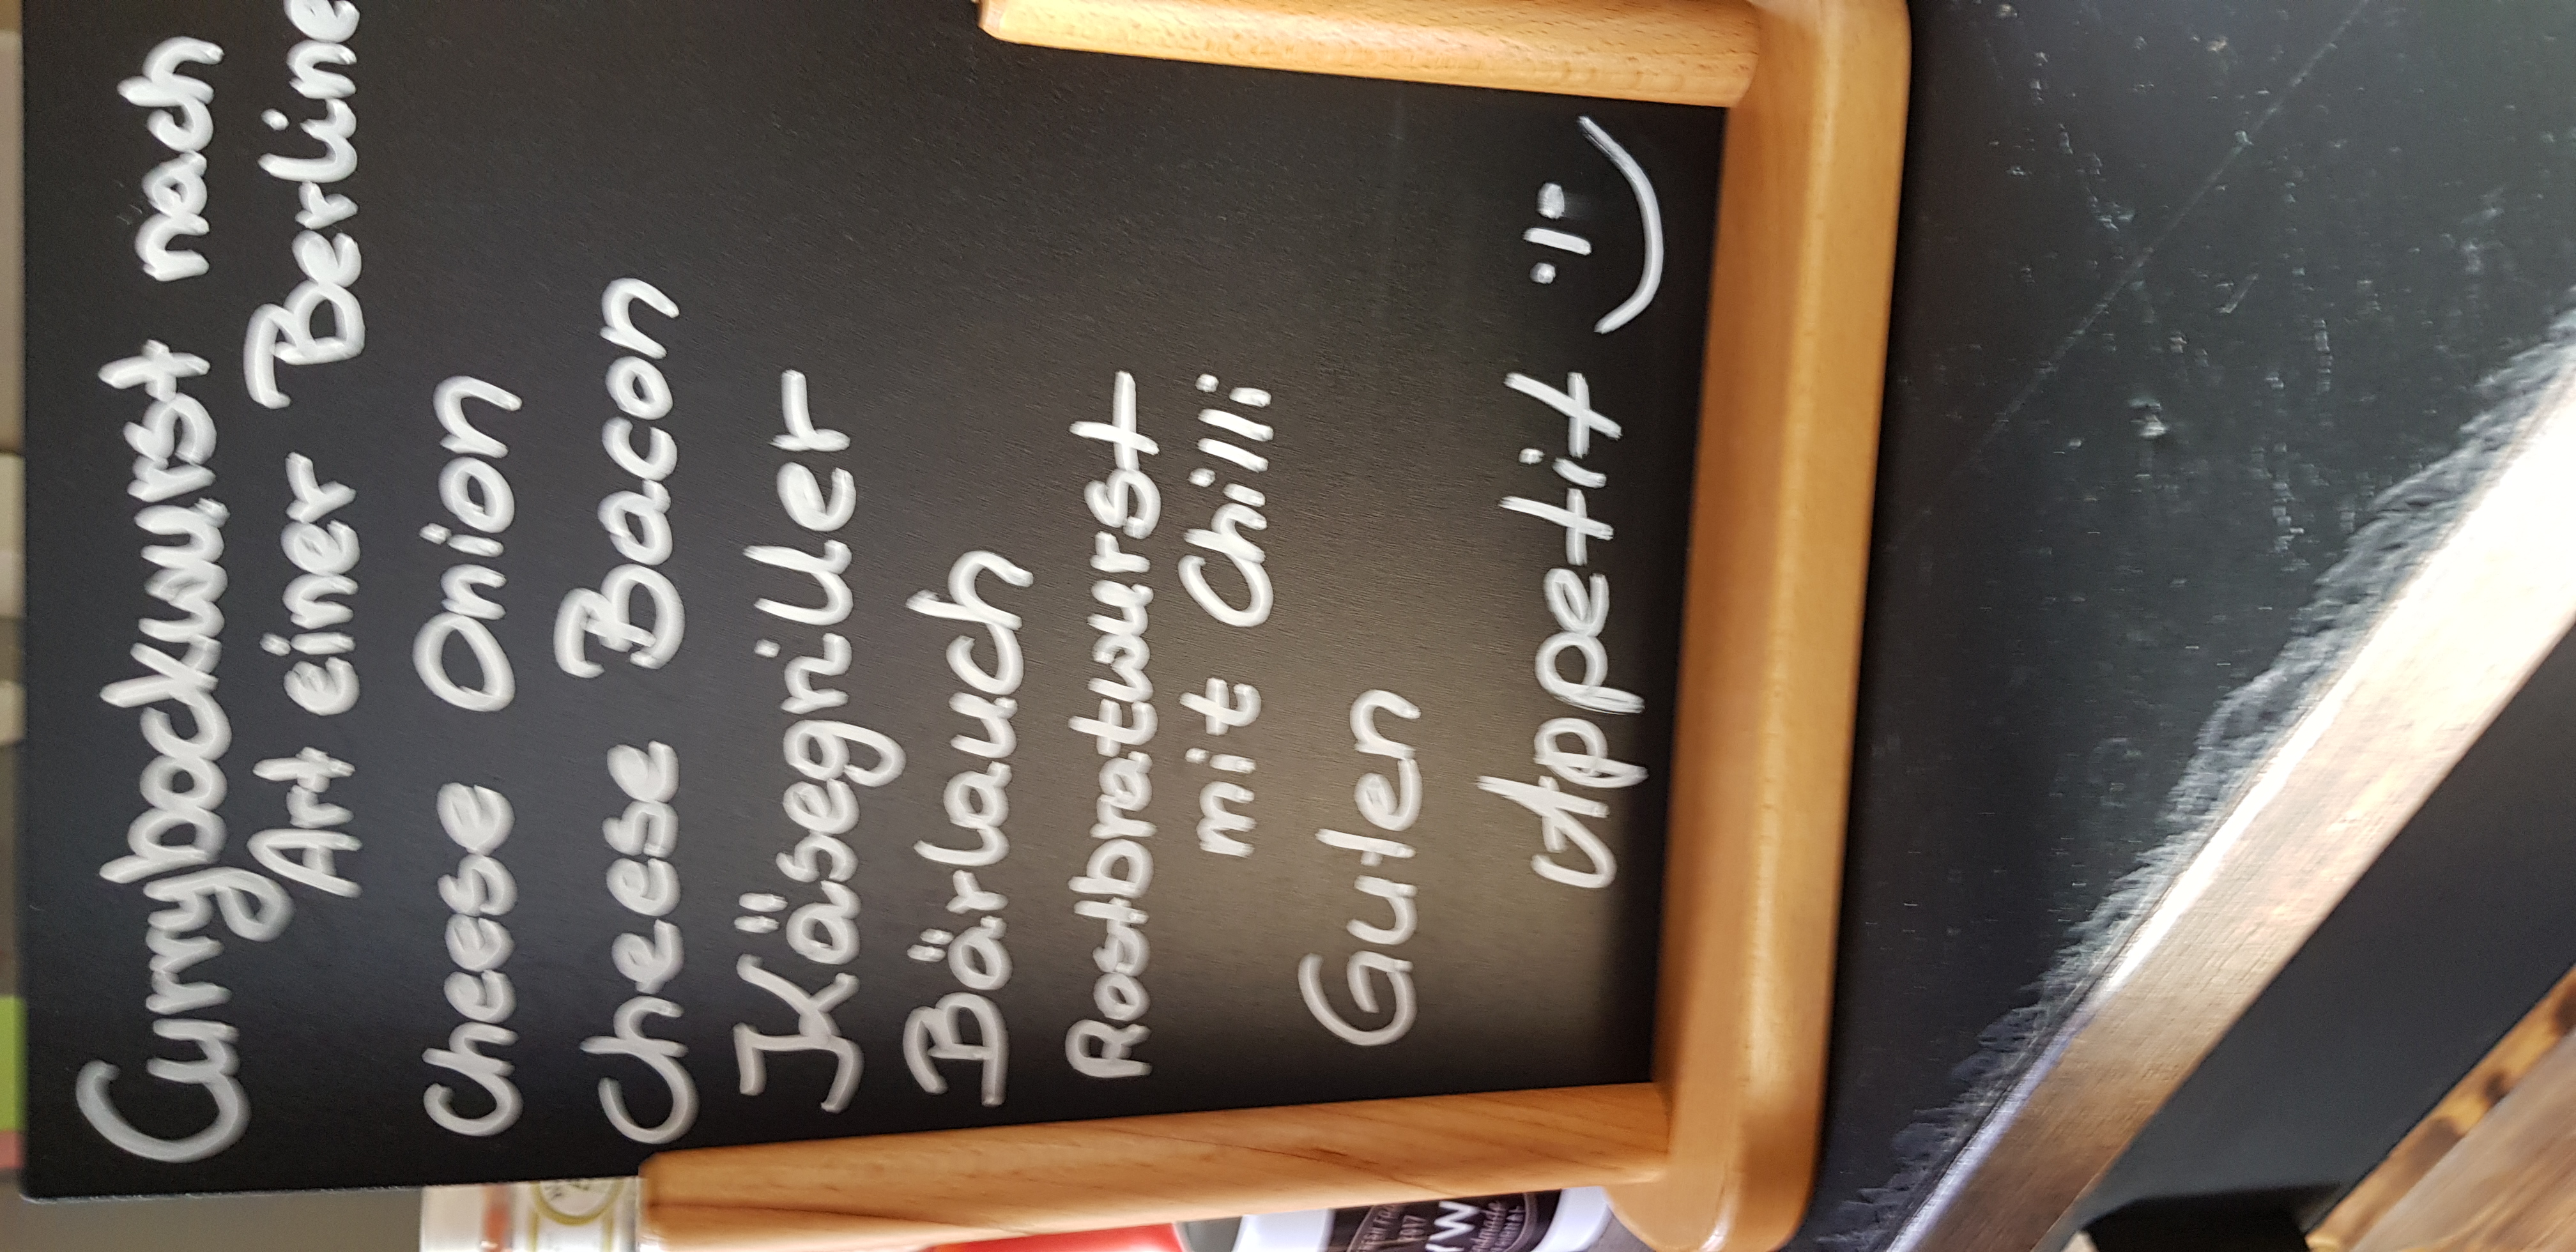 Currybockwurst nach
Art einer Berline
Cheese Onion
Cheese Bacon
Käsegriller
Bärlauch
Rostbratwurst
mit Chilli
Guten
Appetit :)